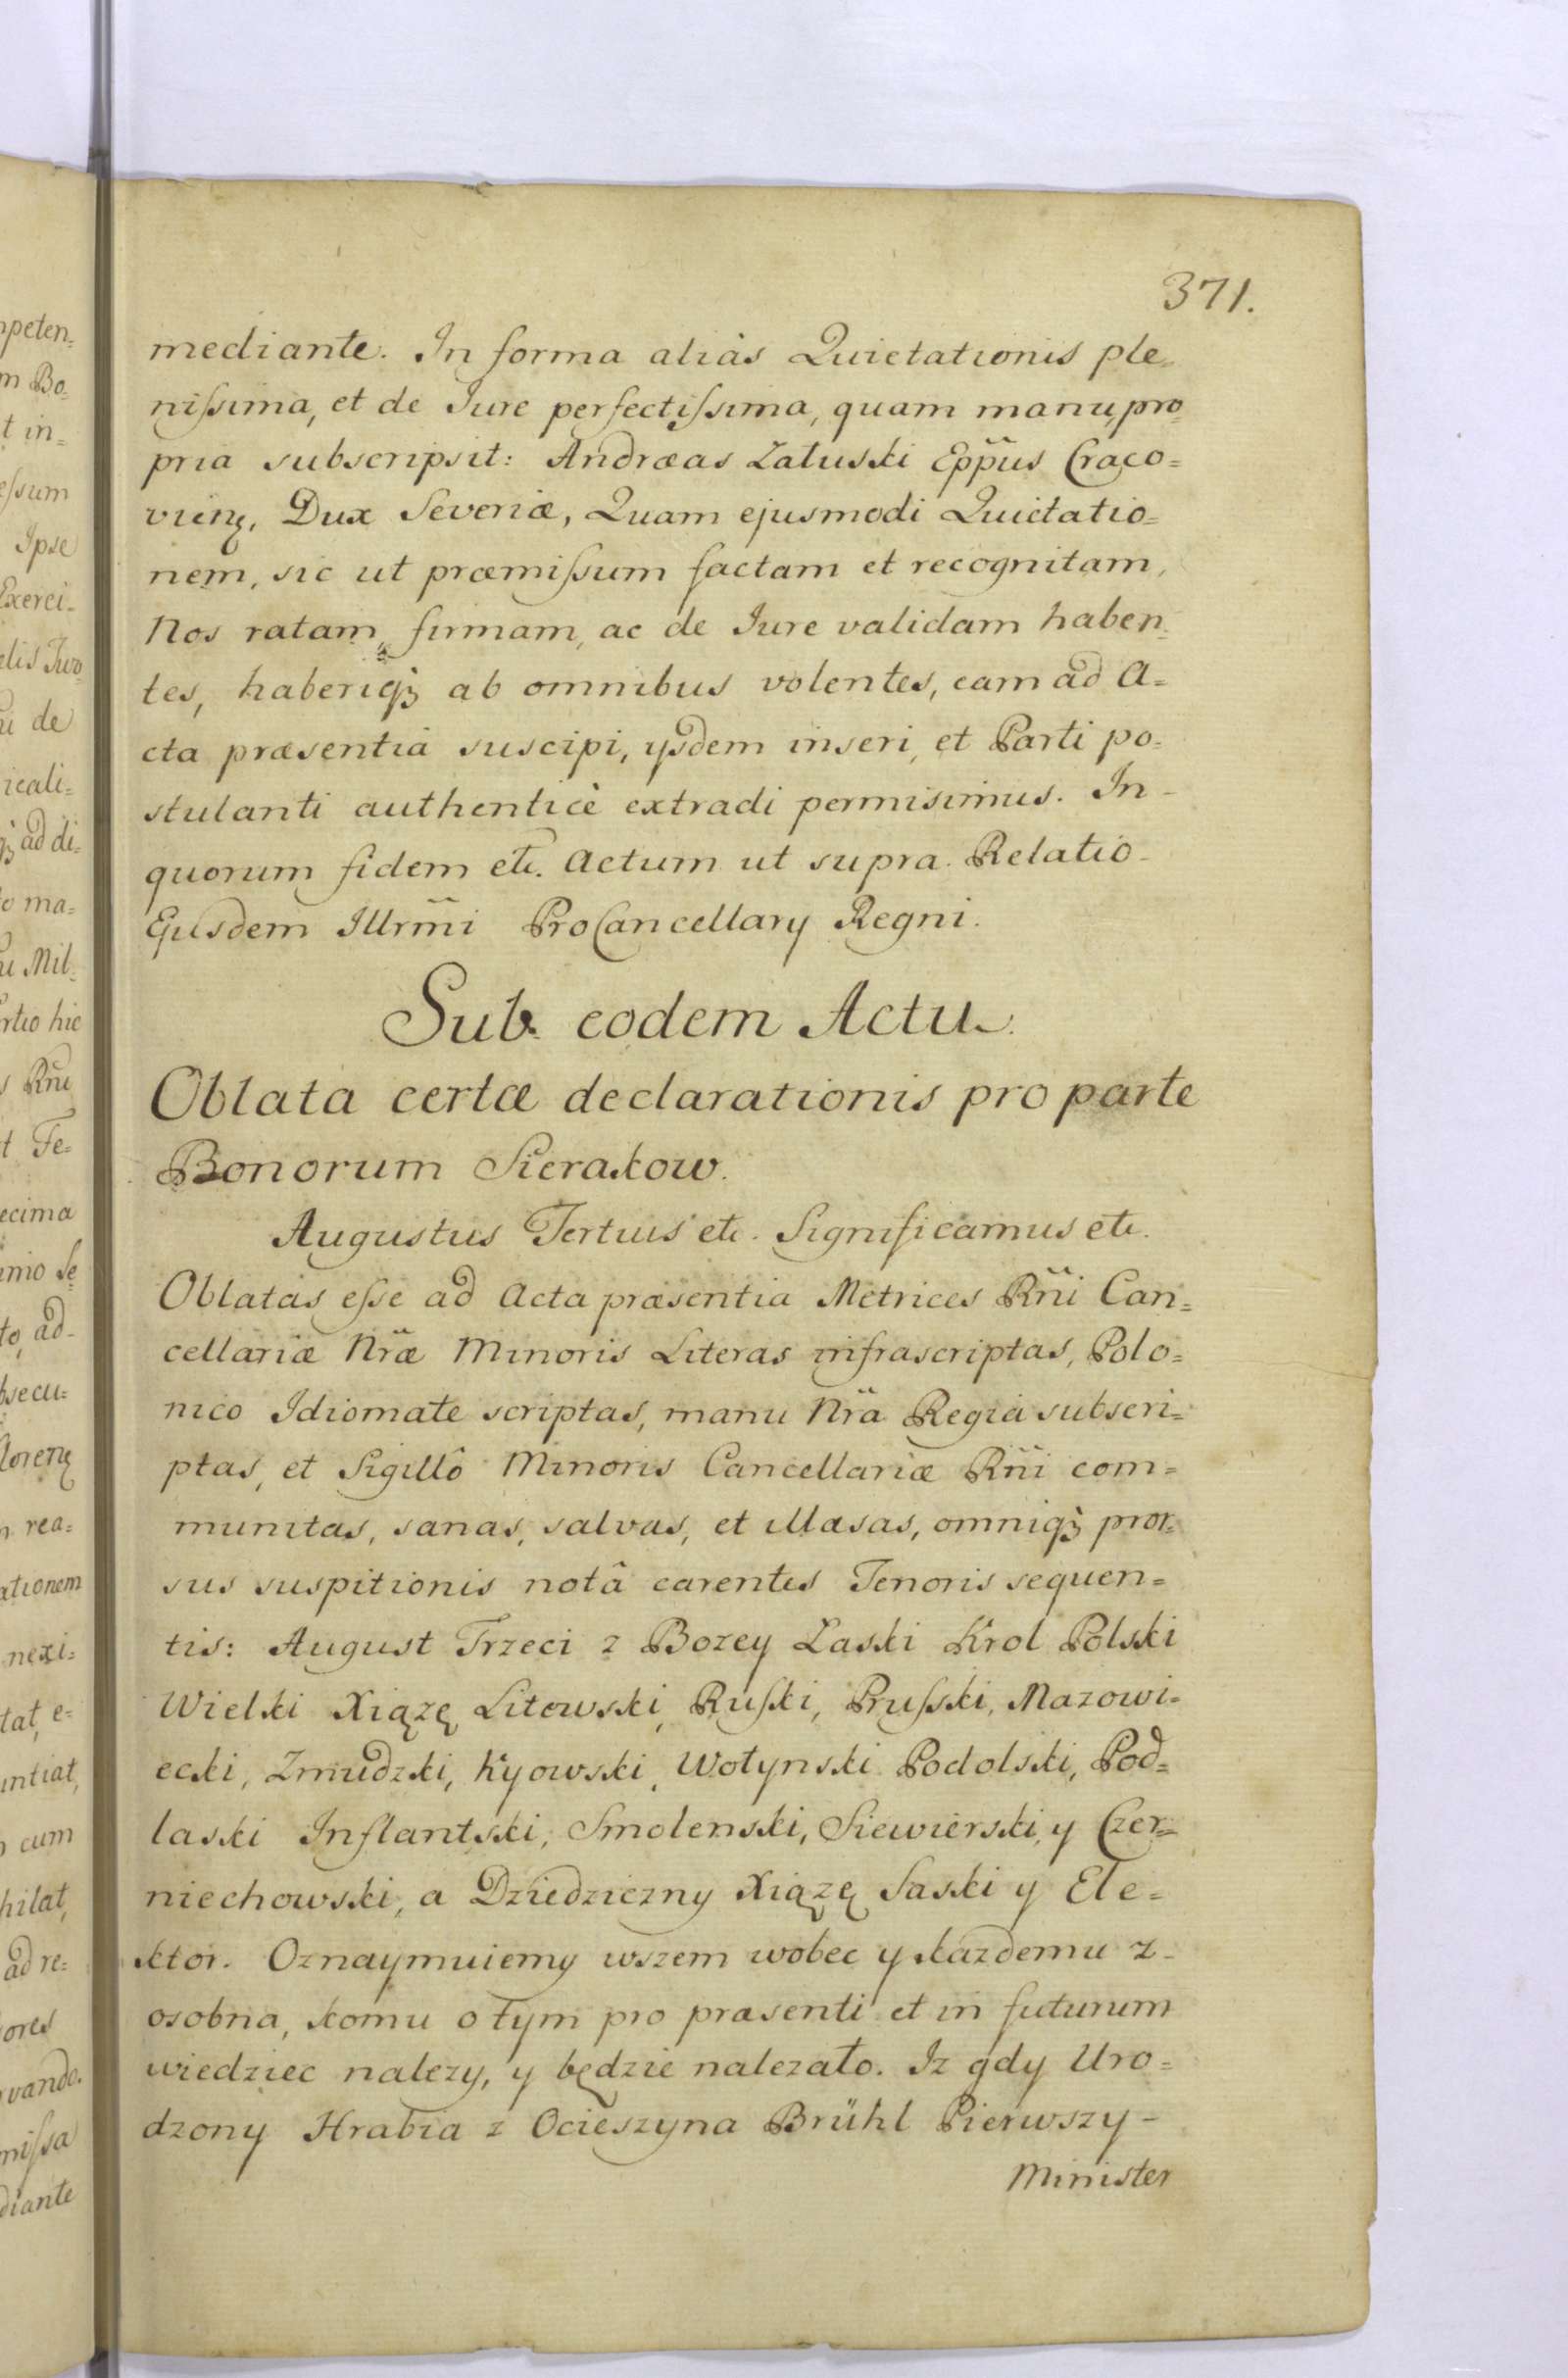 371.
mediante. In forma aliàs Quietationis ple=
nißima, et de Iure perfectißima, quam manu, pro=
pria subscripsit: Andræas Załuski Epp̃us Craco=
vieñ, Dux Severiæ, Quam ejusmodi Quietatio=
nem, sic ut præmißum factam et recognitam,
Nos ratam, firmam, ac de Iure validam haben=
tes, haberiqꝫ ab omnibus volentes, eam ad A=
cta præsentia suscipi, ysdem inseri, et Parti po=
stulanti authenticè extradi permisimus. In-
quorum fidem etc. Actum ut supra. Relatio-
Ejusdem Illrm̃i ProCancellary Regni.
Sub eodem Actu.
Oblata certæ declarationis pro parte
Bonorum Sierakow.
Augustus Tertius etc. Significamus etc.
Oblatas eße ad Acta præsentia Metrices Rñi Can=
cellariæ Nr̃æ Minoris Literas infrascriptas, Polo=
nico Idiomate scriptas, manu Nr̃a Regia subscri=
ptas, et Sigillô Minoris Cancellariæ Rñi com=
munitas, sanas, salvas, et illæsas, omniqꝫ pror=
sus suspitionis notâ carentes Tenoris sequen=
tis: August Trzeci z Bozey Łaski Krol Polski
Wielki Xiązę Litowski, Rußki, Prußki, Mazowi=
ecki, Zmudzki, Kyowski, Wołynski Podolski, Pod=
laski Inflantski, Smolenski, Siewierski, y Czer=
niechowski, a Dziedziczny Xiązę Saski y Ele=
ktor. Oznaymuiemy wszem wobec y kazdemu z-
osobna, komu o tym pro præsenti et in futurum
wiedziec nalezy, y będzie nalezało. Iz gdy Uro=
dzony Hrabia z Ocieszyna Brühl Pierwszy-
Minister